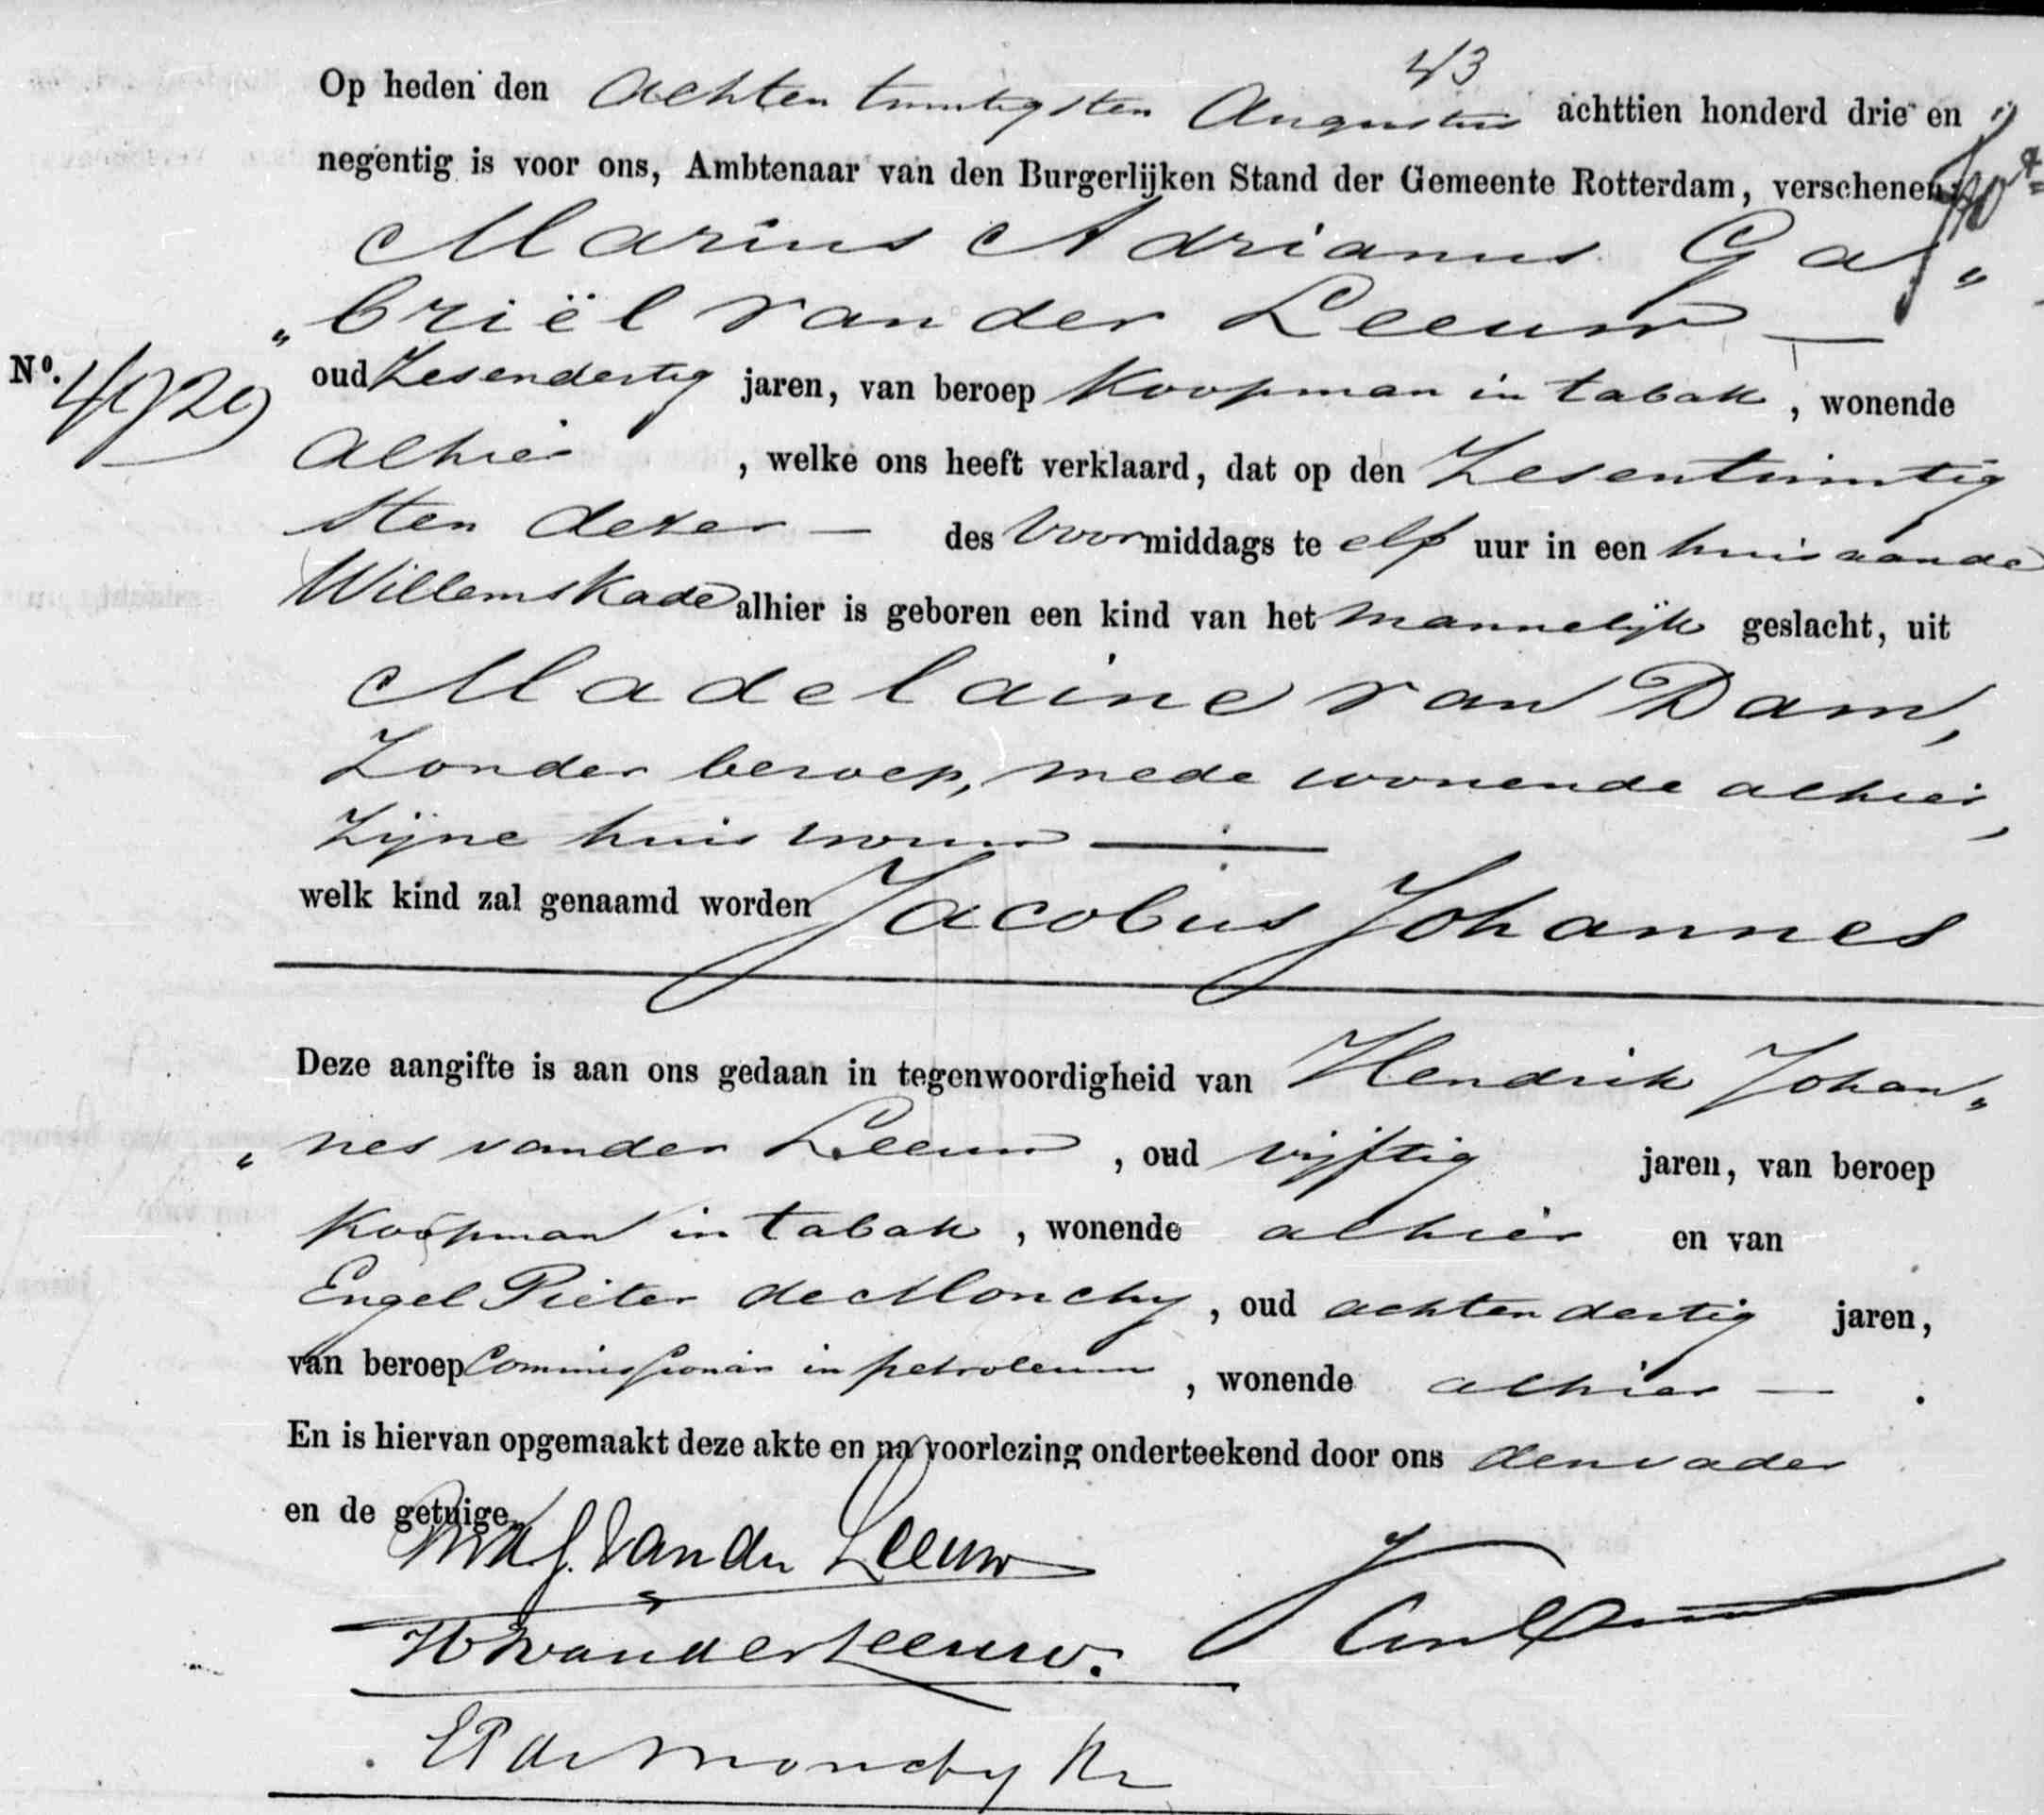 43
Op heden den achtentwintigsten Augustus achttien honderd drie en
negentig is voor ons, Ambtenaar van den Burgerlijken Stand der Gemeente Rotterdam, verschenen:
Marius Adrianus Ga„
„briël van der Leeuw —
No. 4929
oud Zesendertig jaren, van beroep Koopman in tabak, wonende
alhier, welke ons heeft verklaard, dat op den Zesentwintig
sten dezer — des Voormiddags te elf uur in een huis aan de
Willemskade alhier is geboren een kind van het mannelijk geslacht, uit
Madelaine van Dam,
Zonder beroep, mede wonende alhier,
Zijne huisvrouw —
welk kind zal genaamd worden Jacobus Johannes
Deze aangifte is aan ons gedaan in tegenwoordigheid van Hendrik Johan„
„nes van der Leeuw, oud vijftig jaren, van beroep
Koopman in tabak, wonende alhier en van
Engel Pieter de Monchy, oud achtendertig jaren,
van beroep Commissionair in petroleum, wonende alhier — .
En is hiervan opgemaakt deze akte en na voorlezing onderteekend door ons den vader
en de getuigen
M A G. van der Leeuw
HJ van der Leeuw.
EP de Monchy